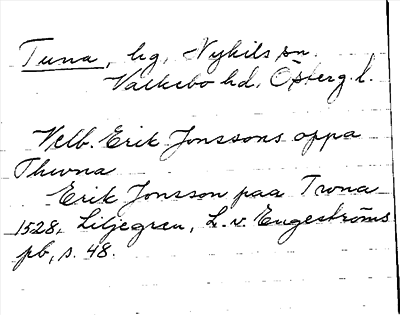 Tuna, hg, Nykils sn.
Valkebo hd, Österg. l.
Velb. Erik Jonssons oppa
Thwna
Erik Jonsson paa Twna
1528, Liljegren, L. v. Engeströms
pb, s. 48.